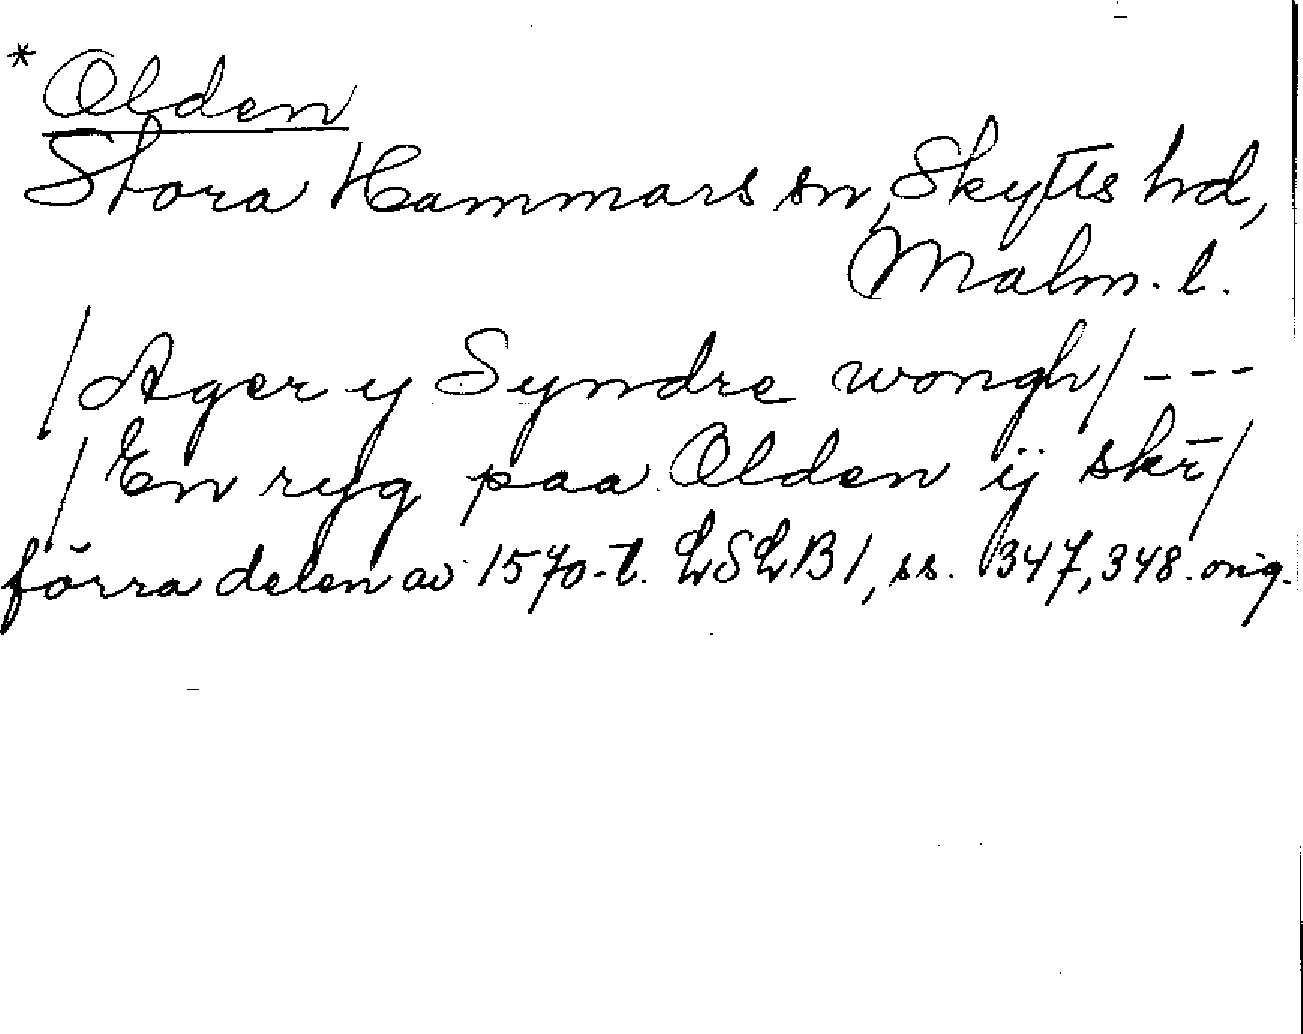 * Olden
Stora Hammars sn, Skytts hd,
Malm. l.
/Ager y Syndre wongh/ ---
/En ryg paa Olden ij skr̄/
förra delen av 1570-t. LSLB1, ss. 347, 348. orig.